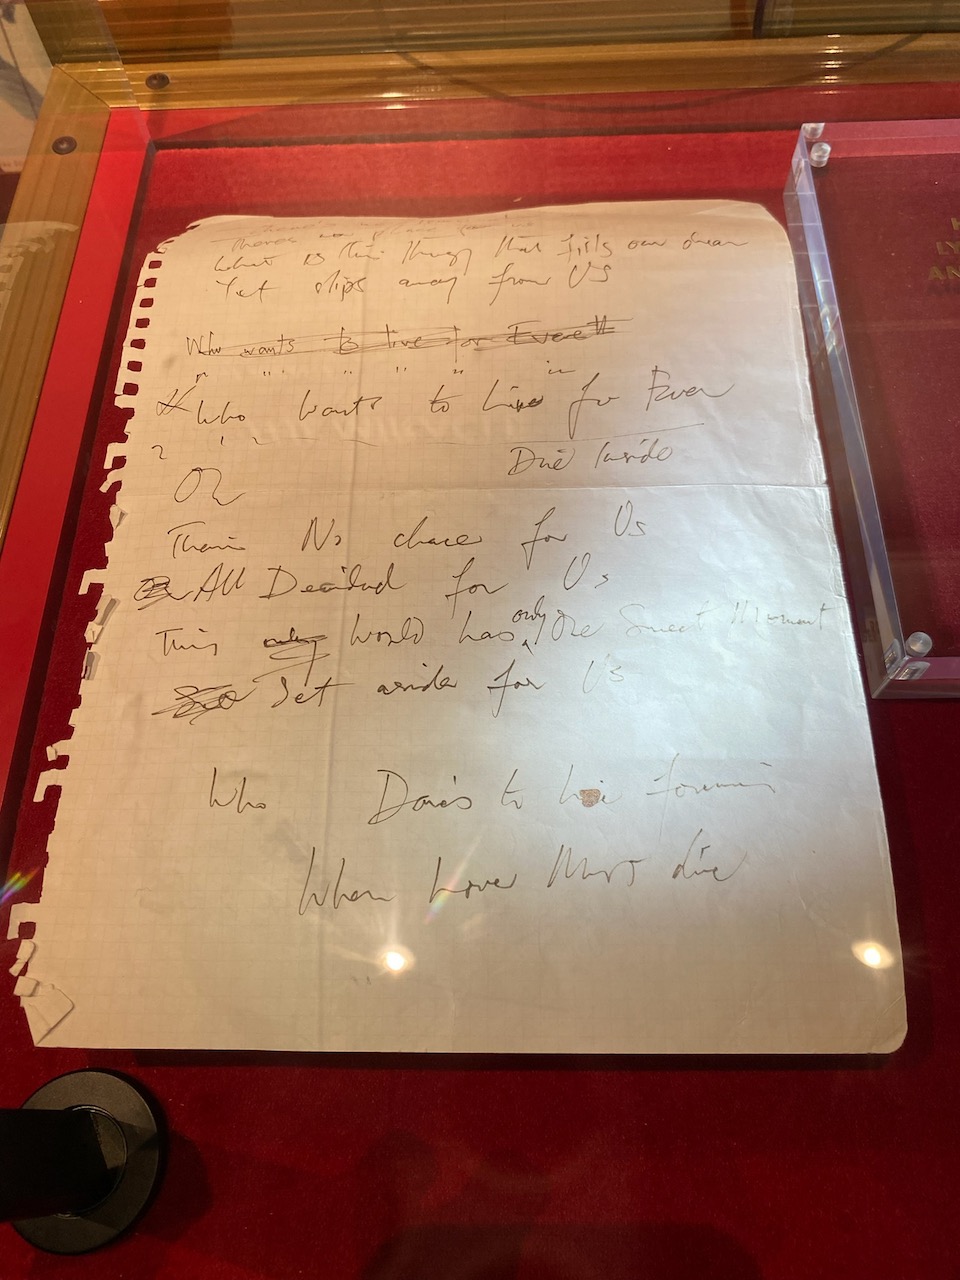 Theres no
What is this thing that fills our dream
Yet slips away from Us
Who wants to live for Ever
" " " " " "
X Who Wants to Live for Ever
? " "
Die Inside
Oh
Theirs No chace for Us
All Decided for Us
This only World has only One Sweet Moment
Set aside for Us
Who Dares to Live forever
When Love Must die
LY
AN